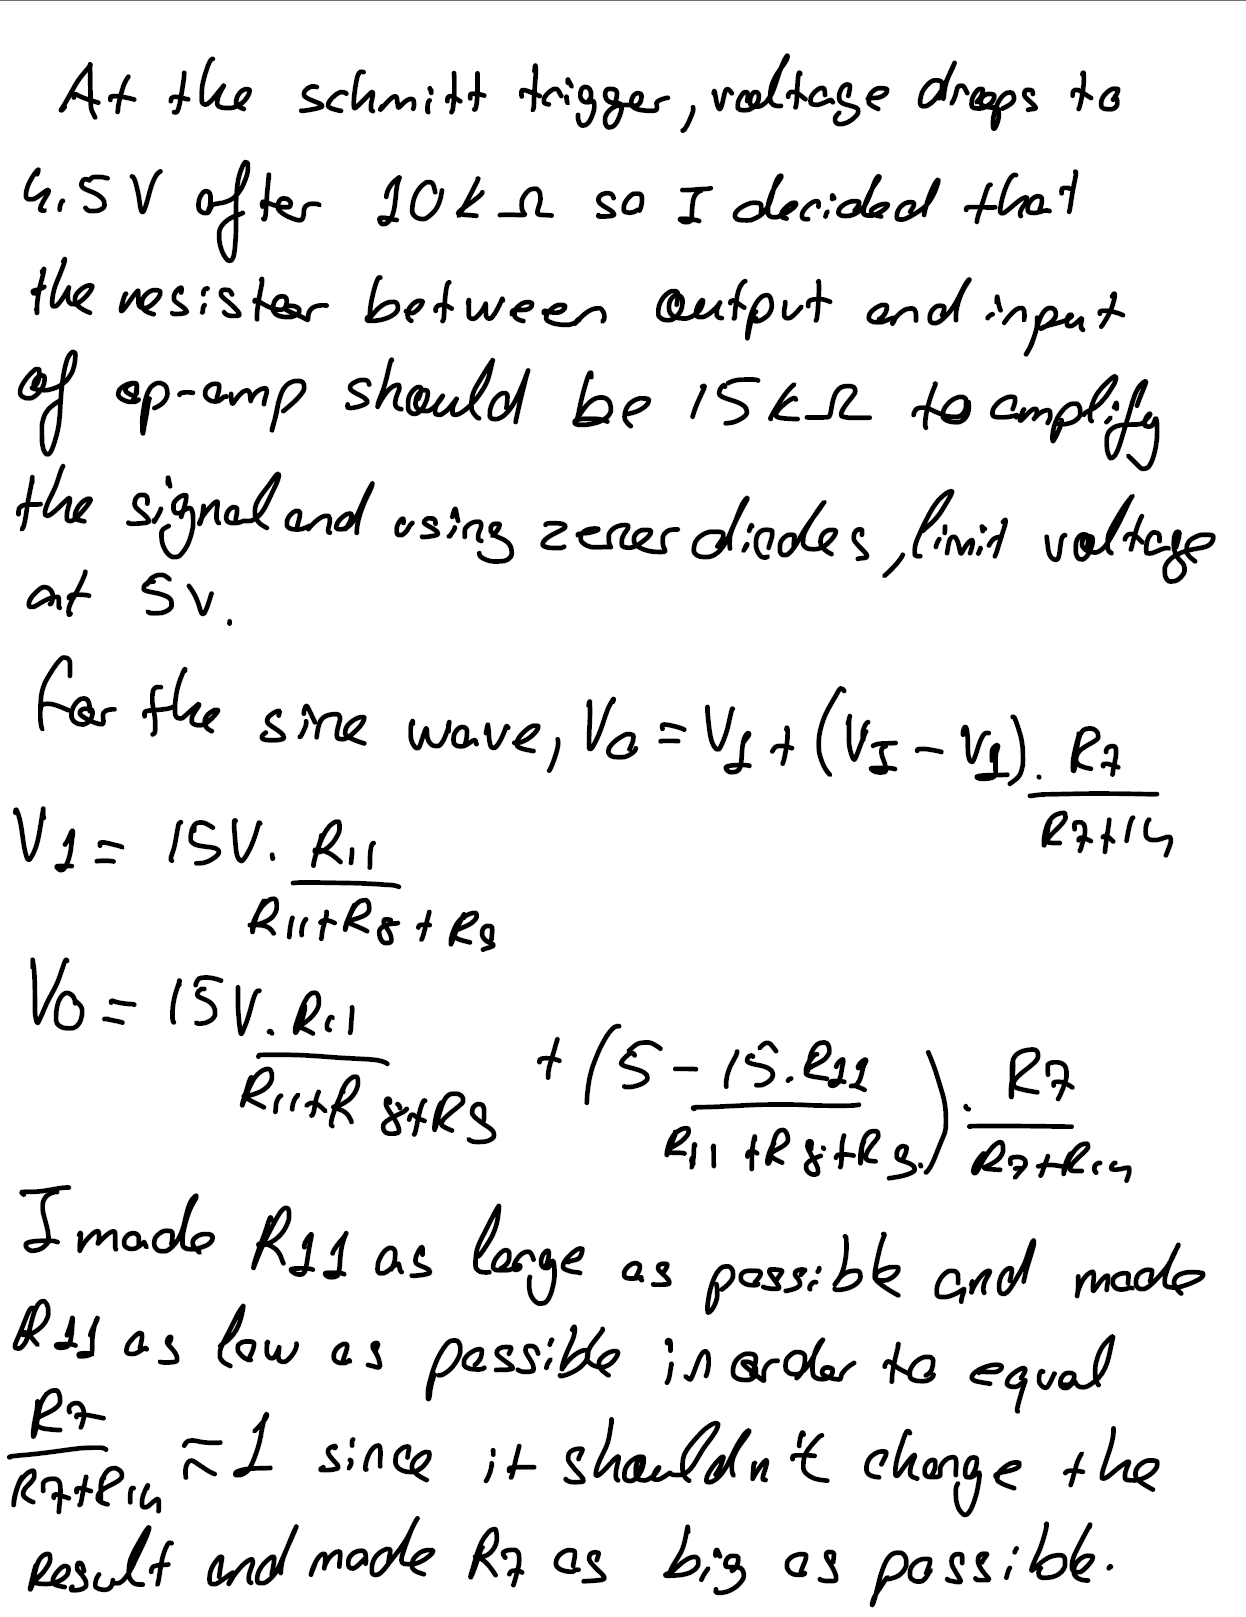 At the schmitt trigger, voltage drops to
4.5 V after 10k Ω so I decided that
the resistor between output and input
of op-amp should be 15kΩ to amplify
the signal and using zener diodes, limit voltage
at 5v.
for the sine wave, Vo = V1 + (VI - V1). R7 / R7+14
V1 = 15V. R11 / R11+R8+R9
Vo = 15V. R11 / R11+R8+R9 + (5 - 15.R11 / R11+R8+R9). R7 / R7+R14
I made R11 as large as possible and made
R11 as low as possible in order to equal
R7 / R7+R14 ≈ 1 since it shouldn't change the
result and made R7 as big as possible.